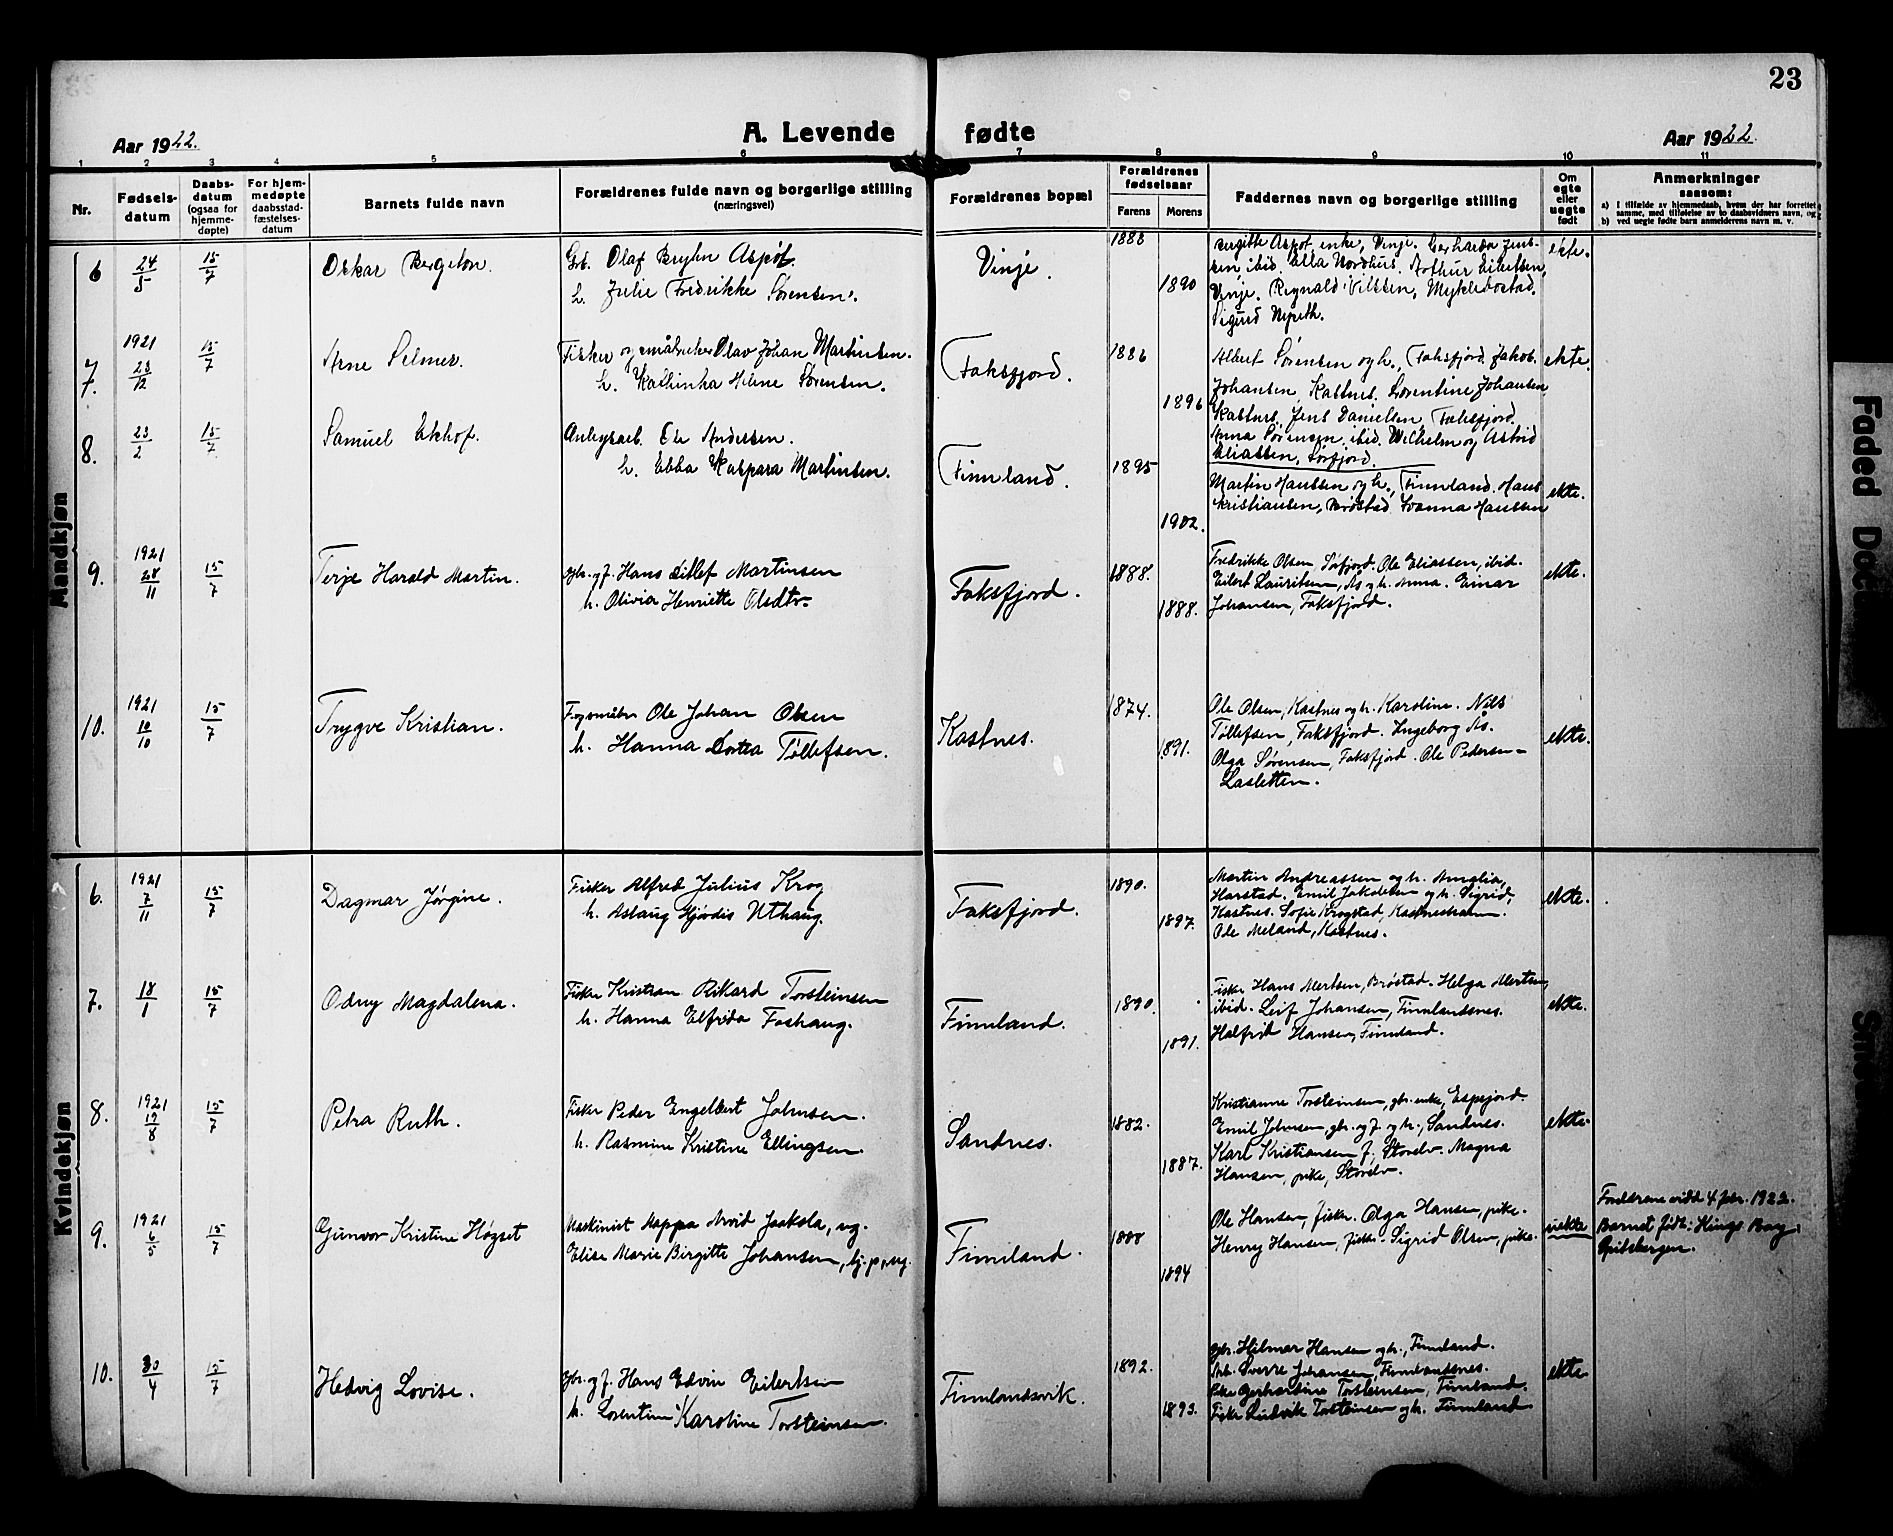 23
Aar 1922.
A. Levende fødte
Aar 1922.
1 2 3 4 5 6 7 8 9 10 11
Nr.
Fødsels-
datum
Daabs-
datum
(ogsaa for
hjemme-
døpte)
For hjem-
medøpte
daabsstad-
fæstelses-
datum
Barnets fulde navn
Forældrenes fulde navn og borgerlige stilling
(næringsvei)
Forældrenes bopæl
Forældrenes
fødselsaar
Farens
Morens
Faddernes navn og borgerlige stilling
Om
egte
eller
uegte
født
Anmerkninger
saasom:
a) I tilfælde av hjemmedaab, hvem der har forrettet
samme, med tilføielse av to daabsvidners navn, og
b) ved uegte fødte barn anmelderens navn m. v.
Mandkjøn
6
24/5
15/7
Oskar Bergeton.
Grb. Olaf Brylin Aspøt.
h. Julie Fredrikke Sørensen.
Vinje.
1888
1890
Birgitte Aspøt, enke, Vinje. Gerharda Jens-
sen, ibid. Ella Nordhus. Arthur Eilertsen,
Vinje. Reynald Nilssen, Myklebostad.
Sigurd Nypeth.
ekte.
7.
1921
23/12
15/7
Arne Selmer.
Fisker og småbruker Olav Johan Martinsen.
h. Kathinka Helene Sørensen.
Faksfjord.
1886
1896
Albert Sørensen og h., Faksfjord. Jakob
Johansen, Kastnes. Lorentine Johansen
Kastnes. Jens Danielsen, Faksfjord.
Anna Sørensen, ibid. Wilhelm og Astrid
Eliassen, Sørfjord.
ekte.
8.
23/2
15/7
Samuel Ekhof.
Anlegsarb. Ole Andersen.
h. Ebba Kaspara Martinsen.
Finnland.
1895
1902.
Martin Hanssen og h., Finnland. Hans
Kristiansen, Brøstad. Joanna Hanssen
ekte.
9.
1921
28/11
15/7
Terje Harald Martin.
gbr. og f. Hans Ditlef Martinsen
h. Olivia Henriette Olsdtr.
Faksfjord.
1888.
1888.
Fredrikke Olsen Søfjord. Ole Eliassen, ibid.
Eilert Lauritsen, Ås og h. Anna. Einar
Johansen, Faksfjord.
ekte.
10.
1921
10/10
15/7
Trygve Kristian.
F. og småbr. Ole Johan Olsen
h. Hanna Dortea Tøllefsen.
Kastnes.
1874.
1891.
Ole Olsen, Kastnes og h. Karoline. Nils
Tøllefsen, Faksfjord. Ingeborg As.
Olga Sørensen, Faksfjord. Ole Pedersen -
Lasletten.
ekte.
Kvindekjøn
6.
1921
7/11
15/7
Dagmar Jørgine.
Fisker Alfred Julius Krog
h. Aslaug Hjørdis Uthaug.
Faksfjord.
1890.
1897.
Martin Andreassen og h. Amalia,
Harstad. Emil Jakobsen og h. Sigrid,
Kastnes. Sofie Krogstad, Kastneshamn.
Ole Meland, Kastnes.
ekte.
7.
18/1
15/7
Odny Magdalena.
Fisker Kristian Rikard Torsteinsen
h. Hanna Elfrida Foshaug.
Finnland.
1890.
1891.
Fisker Hans Mertsen, Brøstad. Helga Mertsen,
ibid. Leif Johansen, Finnlandsnes.
Halfrid Hansen, Finnland.
ekte.
8.
1921
19/8
15/7
Petra Ruth.
Fisker Peder Engelbert Johnsen.
h. Rasmine Kristine Ellingsen.
Sandnes.
1882.
1887.
Kristianne Torsteinsen, gbr. enke, Espejord.
Emil Johnsen, gbr. og f. og h., Sandnes.
Karl Kristiansen f., Storelv. Magna
Hansen, pike, Storelv.
ekte.
9.
1921
6/5
15/7
Gunvor Kristine Høgset
Maskinist Mappa Arvid Jaakola, ug.
Elise Marie Birgitte Johansen, hj. p., ug.
Finnland.
1888
1894
Ole Hansen, fisker. Olga Hansen, pike.
Henry Hansen, fisker. Sigrid Olsen, pike.
uekte
Foreldrene viidd 4 febr. 1922.
Barnet født: Kings Bay,
Spitsbergen.
10.
30/4
15/7
Hedvig Lovise.
gbr. og f. Hans Edvin Eilertsen
h. Lorentine Karoline Torsteinsen.
Finnlandsvik.
1892.
1893.
gbr. Hilmar Hansen og h., Finnland.
Arb. Sverre Johansen, Finnlandsnes.
Pike Gerhardine Torsteinsen, Finnland.
Fisker Ludvik Torsteinsen og h. Finnland
ekte
Faded Doc